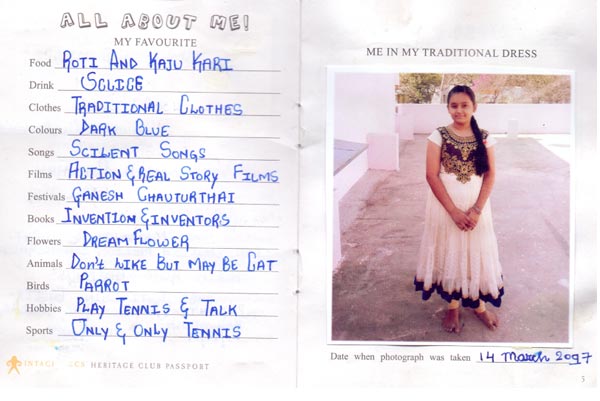 ALL ABOUT ME!
MY FAVOURITE
Food ROTI AND KAJU KARI
Drink SCLICE
Clothes TRADITIONAL CLOTHES
Colours DARK BLUE
Songs SCILENT SONGS
Films ACTION & REAL STORY FILMS
Festivals GANESH CHAUTURTHAI
Books INVENTION & INVENTORS
Flowers DREAM FLOWER
Animals DON'T LIKE BUT MAY BE CAT
Birds PARROT
Hobbies PLAY TENNIS & TALK
Sports ONLY & ONLY TENNIS
HERITAGE CLUB PASSPORT
ME IN MY TRADITIONAL DRESS
Date when photograph was taken 14 March 2097
5